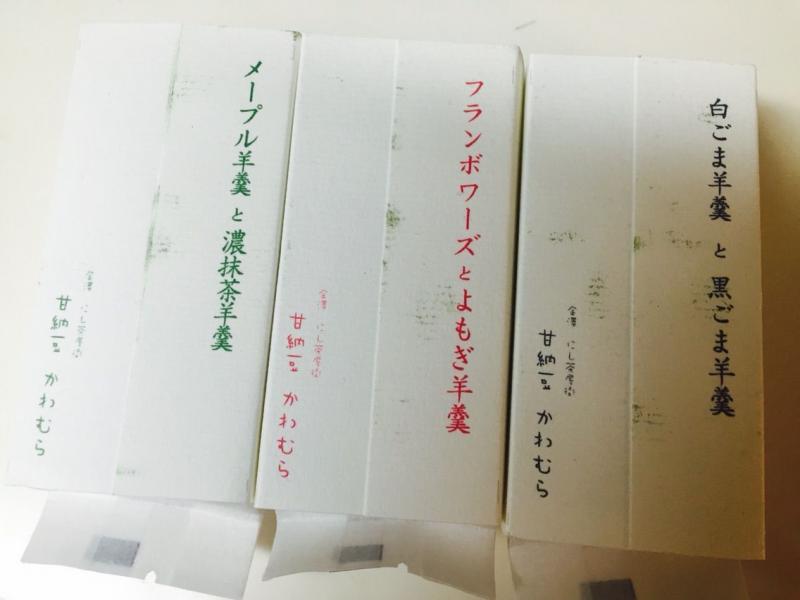 メープル羊羹と濃抹茶羊羹
金澤 にし茶屋街
甘納豆 かわむら
フランボワーズとよもぎ羊羹
金澤 にし茶屋街
甘納豆 かわむら
白ごま羊羹と黒ごま羊羹
金澤 にし茶屋街
甘納豆 かわむら